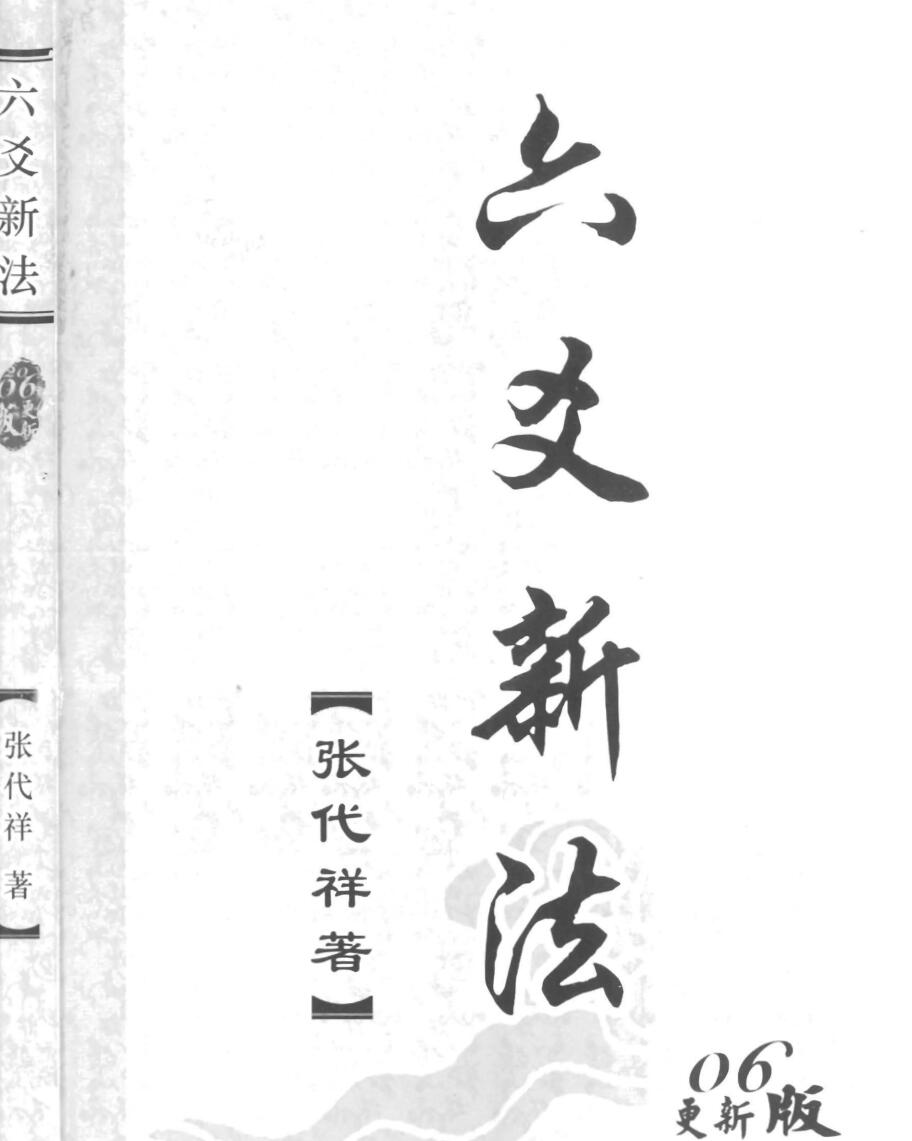 六爻新法
2006
更新版
张代祥 著
六爻新法
【张代祥著】
06
更新版